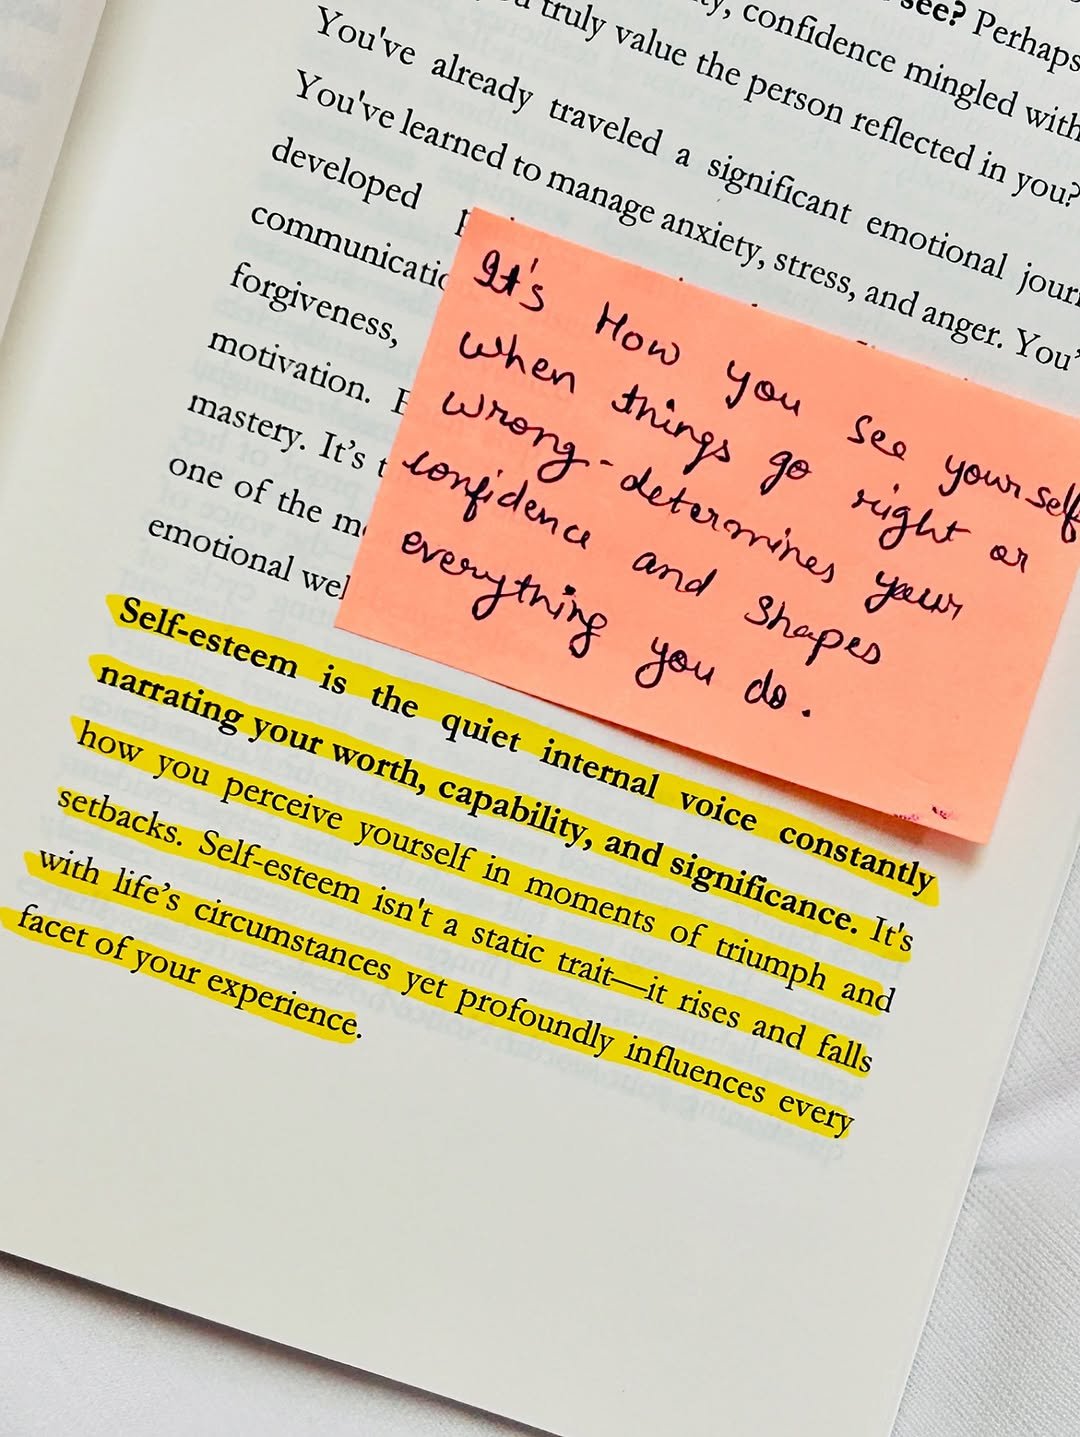 see? Perhaps
truly value the person reflected in you?
confidence mingled with
You've already traveled a significant emotional
You've learned to manage anxiety, stress, and anger.
developed
forgiveness,
motivation.
mastery. It's
one of the
emotional
It's How you see yourself
when things go right or
wrong - determines your
confidence and shapes
everything you do.
Self-esteem is the quiet internal voice constantly
narrating your worth, capability, and significance. It's
how you perceive yourself in moments of triumph and
setbacks. Self-esteem isn't a static trait—it rises and falls
with life's circumstances yet profoundly influences every
facet of your experience.